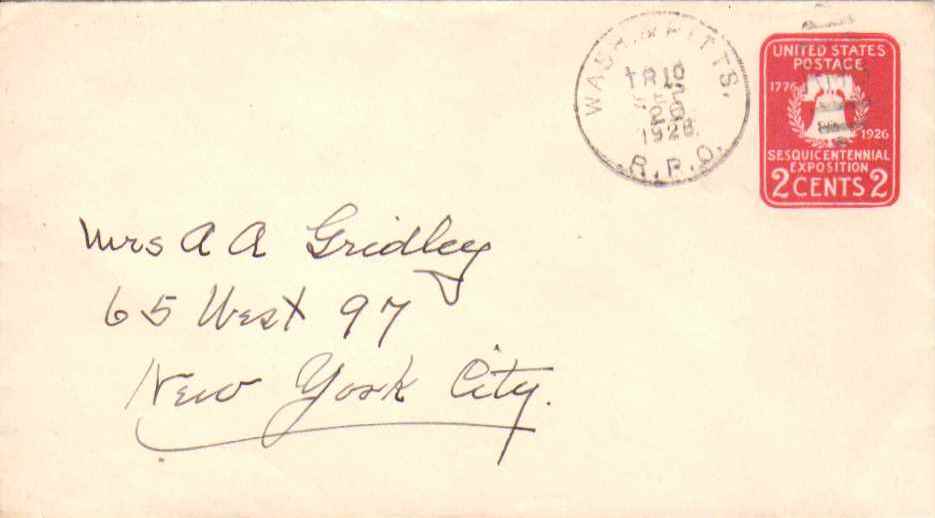 WASH. & PITTS.
TR 10
1928
R.P.O.
UNITED STATES
POSTAGE
1776
1926
SESQUICENTENNIAL
EXPOSITION
2 CENTS 2
Mrs A A Gridley
65 West 97
New York City.